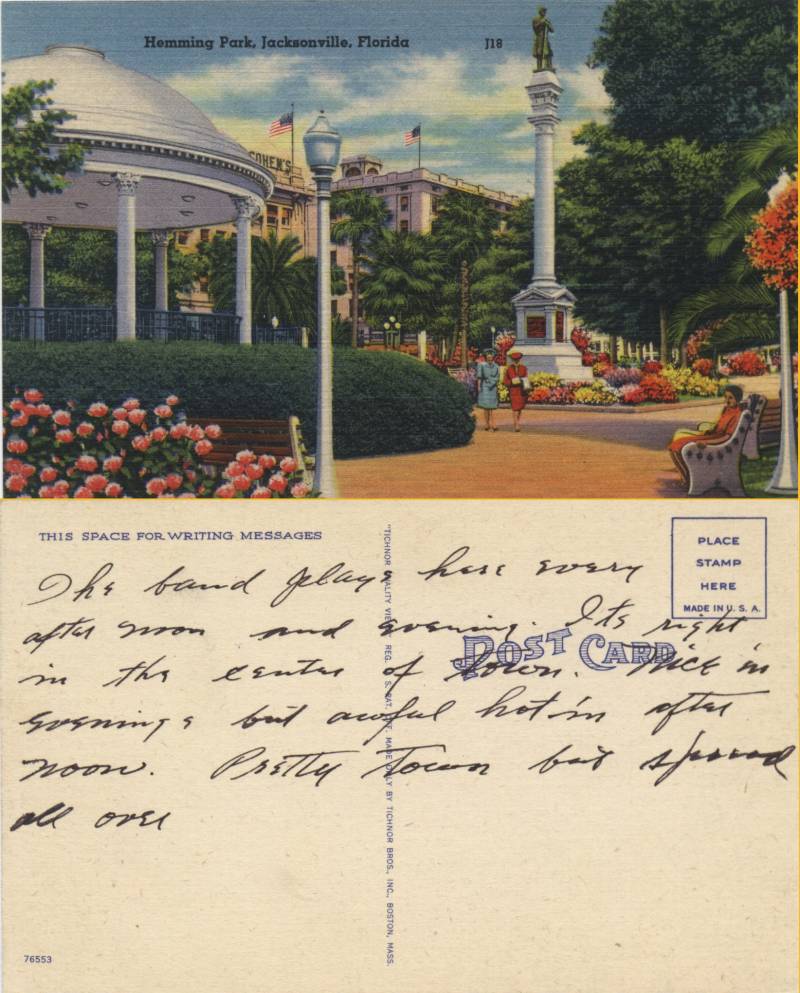 Hemming Park, Jacksonville, Florida
J18
COHEN'S
THIS SPACE FOR WRITING MESSAGES
PLACE
STAMP
HERE
MADE IN U. S. A.
POST CARD
The band plays here every
after noon and evening. Its right
in the center of town. Nice in
evenings but awful hot in after
noon. Pretty Town but spread
all over
"TICHNOR QUALITY VIEWS," REG. U. S. PAT. OFF. MADE ONLY BY TICHNOR BROS., INC., BOSTON, MASS.
76553